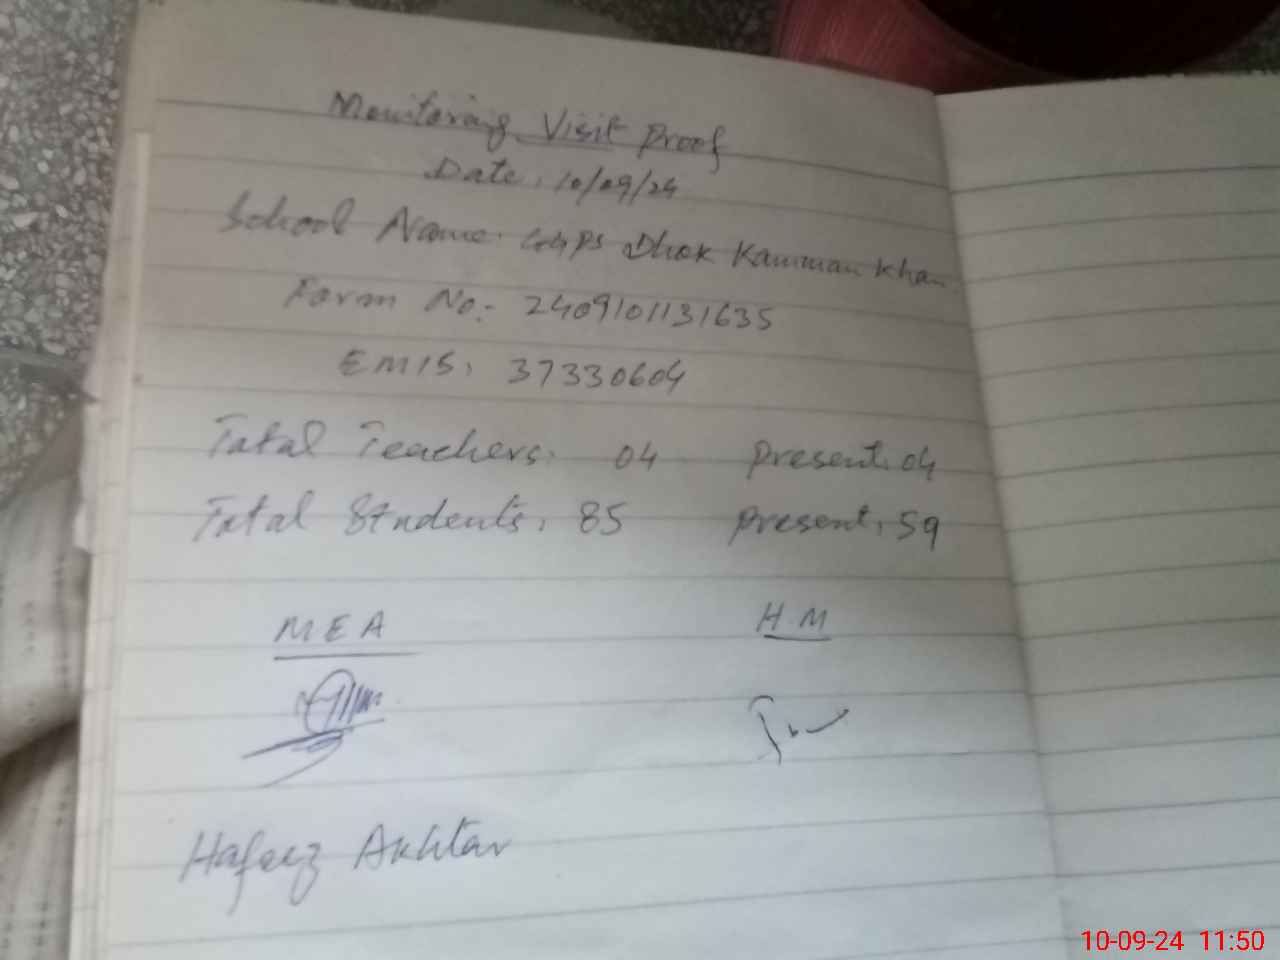 Monitoring Visit Proof
Date: 10/09/24
School Name: GGPS Dhok Kamman Khan
Form No:- 2409101131635
EMIS: 37330604
Total Teachers: 04 Present: 04
Total Students: 85 Present: 59
MEA H.M
Hafeez Akhtar
10-09-24 11:50